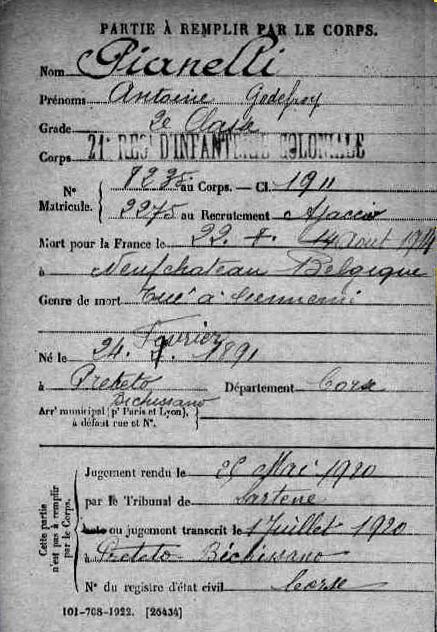 PARTIE À REMPLIR PAR LE CORPS.
Nom Pianelli
Prénoms Antoine Godefroy
Grade 2e Classe
Corps 21e REGt D'INFANTERIE COLONIALE
N° Matricule. 8235 au Corps. — Cl. 1911
2275 au Recrutement Ajaccio
Mort pour la France le 22. 14 Aout 1914
à Neufchateau Belgique
Genre de mort Tué à l'ennemi
Février
Né le 24. 1891
à Preteto Département Corse
Bichissano
Arrt municipal (pr Paris et Lyon),
à défaut rue et N°.
Cette partie n'est pas à remplir par le Corps.
Jugement rendu le 25 Mai 1920
par le Tribunal de Sartene
acte ou jugement transcrit le 1 Juillet 1920
à Petreto Béchissano
N° du registre d'état civil Corse
101-708-1922. [26434]